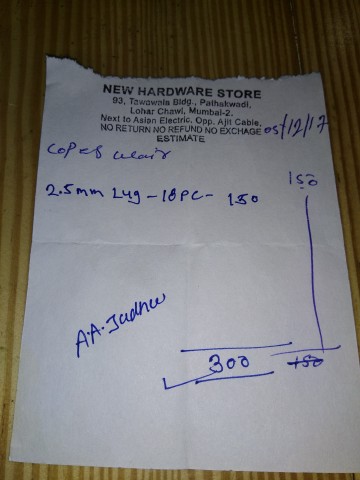 NEW HARDWARE STORE
93, Tawawala Bldg., Pathakwadi,
Lohar Chawl, Mumbai-2.
Next to Asian Electric, Opp. Ajit Cable,
NO RETURN NO REFUND NO EXCHAGE
ESTIMATE
05/12/17
150
2.5mm Lug - 18 PC - 150
A.A. Jadhav
300
150